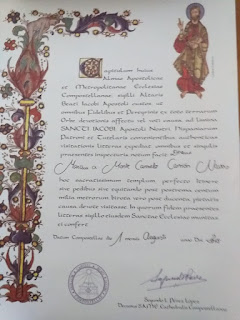 Capitulum huius
Almae Apostolicae
et Metropolitanae Ecclesiae
Compostellanae sigilli Altaris
Beati Iacobi Apostoli custos ut
omnibus Fidelibus et Peregrinis ex toto terrarum
Orbe, devotionis affectu vel voti causa, ad limina
SANCTI IACOBI Apostoli Nostri Hispaniarum
Patroni et Tutelaris convenientibus, authenticas
visitationis litteras expediat, omnibus et singulis
praesentes inspecturis, notum facit:
hoc sacratissimum templum, perfecto itinere
sive pedibus sive equitando post postrema centum
milia metrorum, birota vero post ducenta, pietatis
causa, devote visitasse. In quorum fidem praesentes
litteras, sigillo eiusdem Sanctae Ecclesiae munitas,
ei confert.
Datum Compostellae die 1 mensis Augusti anno Dni
Segundo L. Pérez López
Decanus S.A.M.E. Cathedralis Compostellanae